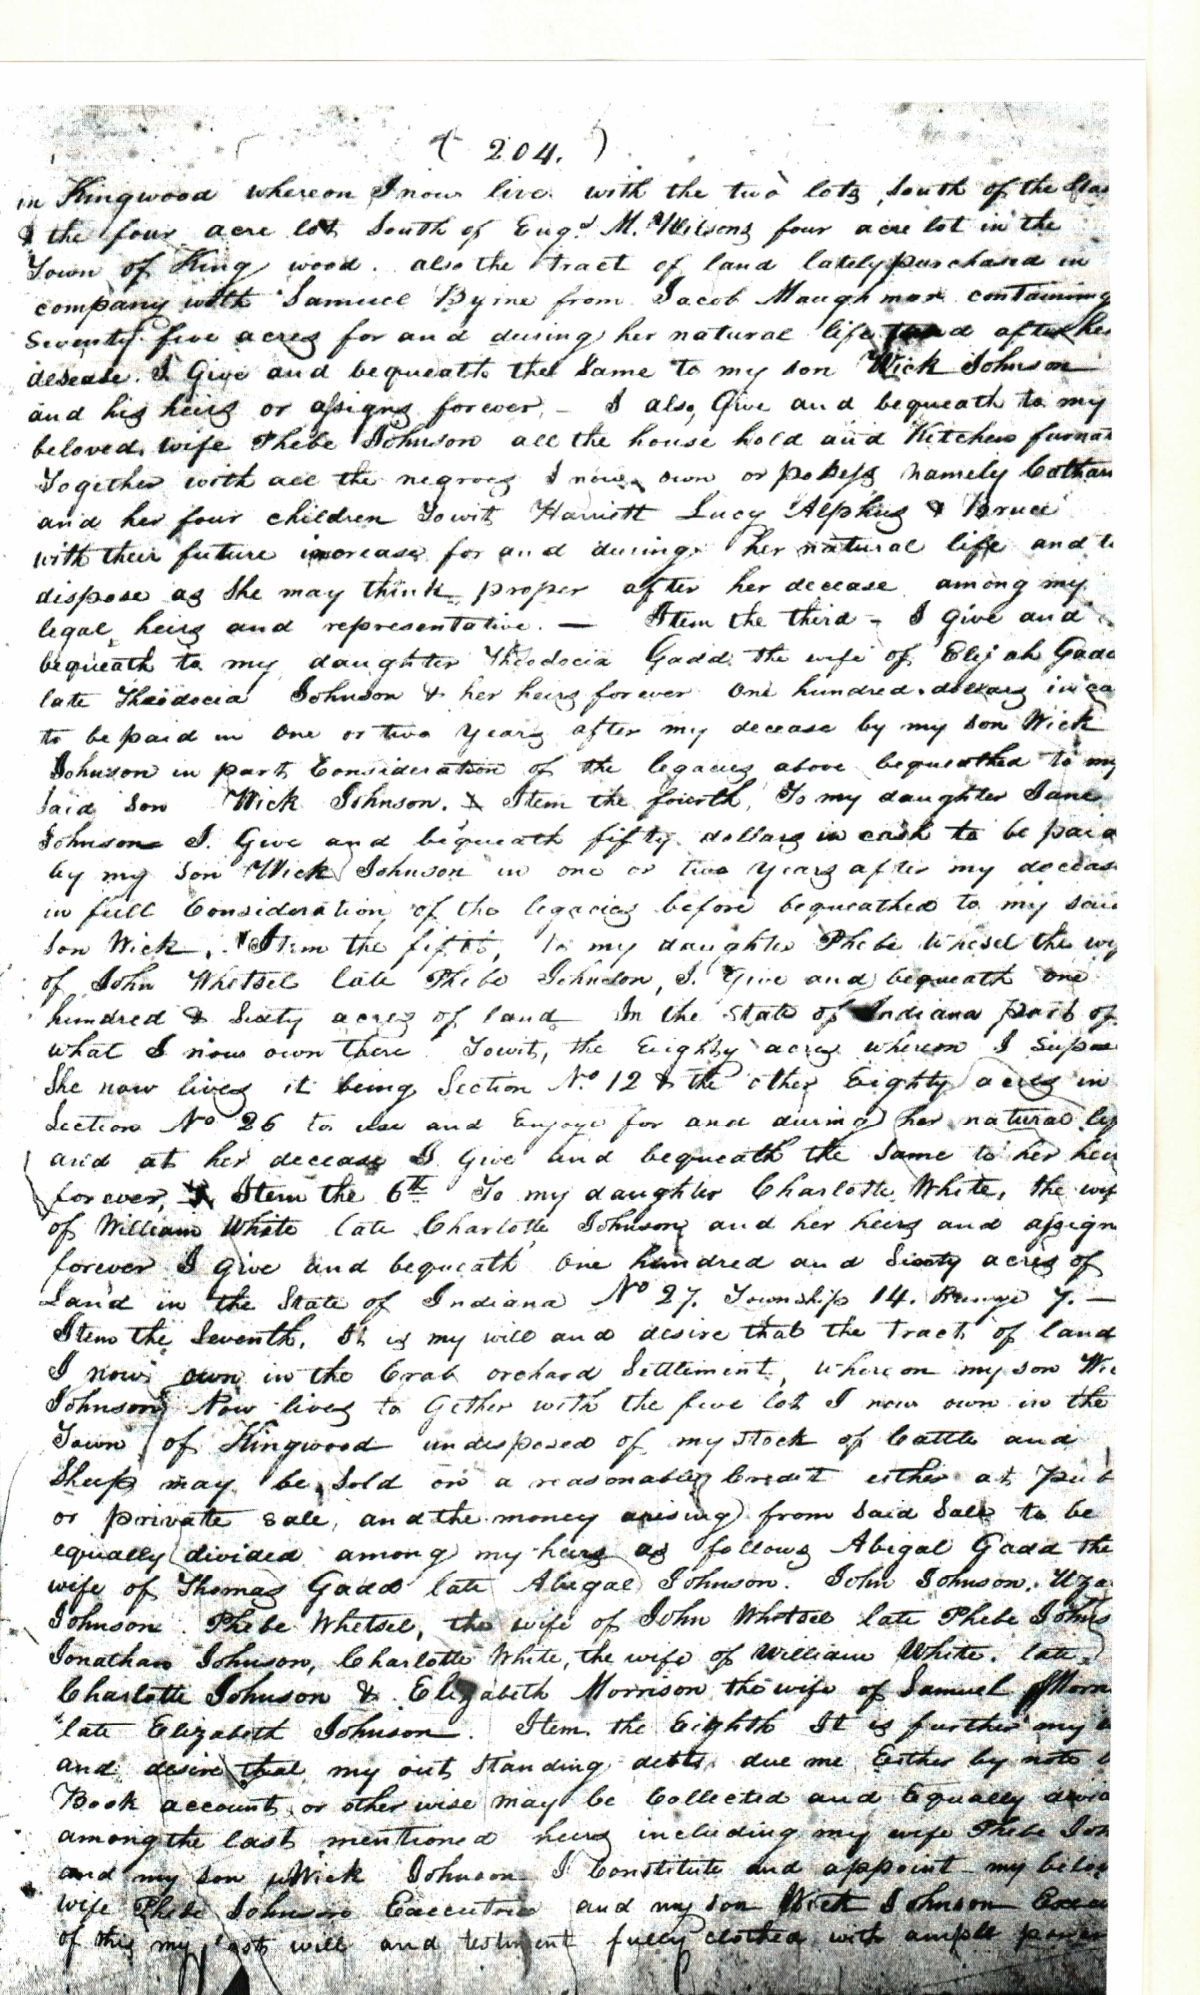 ( 204. )
in Kingwood whereon I now live with the two lots South of the
& the four acre lot South of Eugs M. Wilsons four acre lot in the
Town of King wood. also the tract of land lately purchased in
company with Samuel Byrne from Jacob Maughmar containing
Seventy five acres for and during her natural life and after her
desease. I Give and bequeath the Same to my son Wick Johnson
and his heirs or assigns forever. – I also Give and bequeath to my
beloved wife Phebe Johnson all the house hold and Kitchen furnat
Together with all the negroes I now own or possess namely Cathan
and her four children Towit Harriett Lucy Alpheus & Bruce
with their future increase for and during her natural life and to
dispose as She may think proper after her decease among my
legal heirs and representative. — Item the third – I give and
bequeath to my daughter Theodocia Gadd the wife of Elijah Gadd
late Theodocia Johnson & her heirs forever One hundred dollars in ca
to be paid in One or two years after my decease by my son Wick
Johnson in part Consideration of the legacies above bequeathed to my
Said Son Wick Johnson. Item the fourth, To my daughter Jane
Johnson I Give and bequeath fifty dollars in cash to be paid
by my Son Wick Johnson in one or two years after my deceas
in full Consideration of the legacies before bequeathed to my said
Son Wick. Item the fifth, to my daughter Phebe Whesel the wif
of John Whetsel late Phebe Johnson, I Give and bequeath one
hundred & Sixty acres of land In the State of Indiana part of
what I now own there Towit, the Eighty acres whereon I Supose
She now lives it being Section No. 12 & the other Eighty acres in
Section No 26 to use and Enjoye for and during her natural life
and at her decease I Give and bequeath the Same to her heirs
forever, Item the 6th To my daughter Charlotte White, the wife
of William White late Charlotte Johnson and her heirs and assign
forever I Give and bequeath One hundred and Sixty acres of
Land in the State of Indiana No 27. Township 14. Range 7. —
Item the Seventh. It is my will and desire that the tract of land
I now own in the Crab orchard Settlement, where on my son Wic
Johnson Now lives to Gether with the five lot I now own in the
Town of Kingwood undisposed of my stock of Cattle and
Sheep may be Sold on a reasonable Credit either at Pub
or private sale, and the money arising from said Sale to be
equally divided among my heirs as follows Abigal Gadd the
wife of Thomas Gadd late Abigal Johnson. John Johnson. Uza
Johnson. Phebe Whetsel, the wife of John Whetsel late Phebe Johns
Jonathan Johnson, Charlotte White, the wife of William White. late
Charlotte Johnson & Elizabeth Morrison the wife of Samuel Morr
late Elizabeth Johnson. Item the Eighth It is further my
and desire that my out Standing debts due me Either by note
Book account or other wise may be Collected and Equally devid
among the last mentioned heirs including my wife Phebe Joh
and my son Wick Johnson I Constitute and appoint my belov
wife Phebe Johnson Executrix and my son Wick Johnson Execu
of this my last will and testment fully clothed with ample power